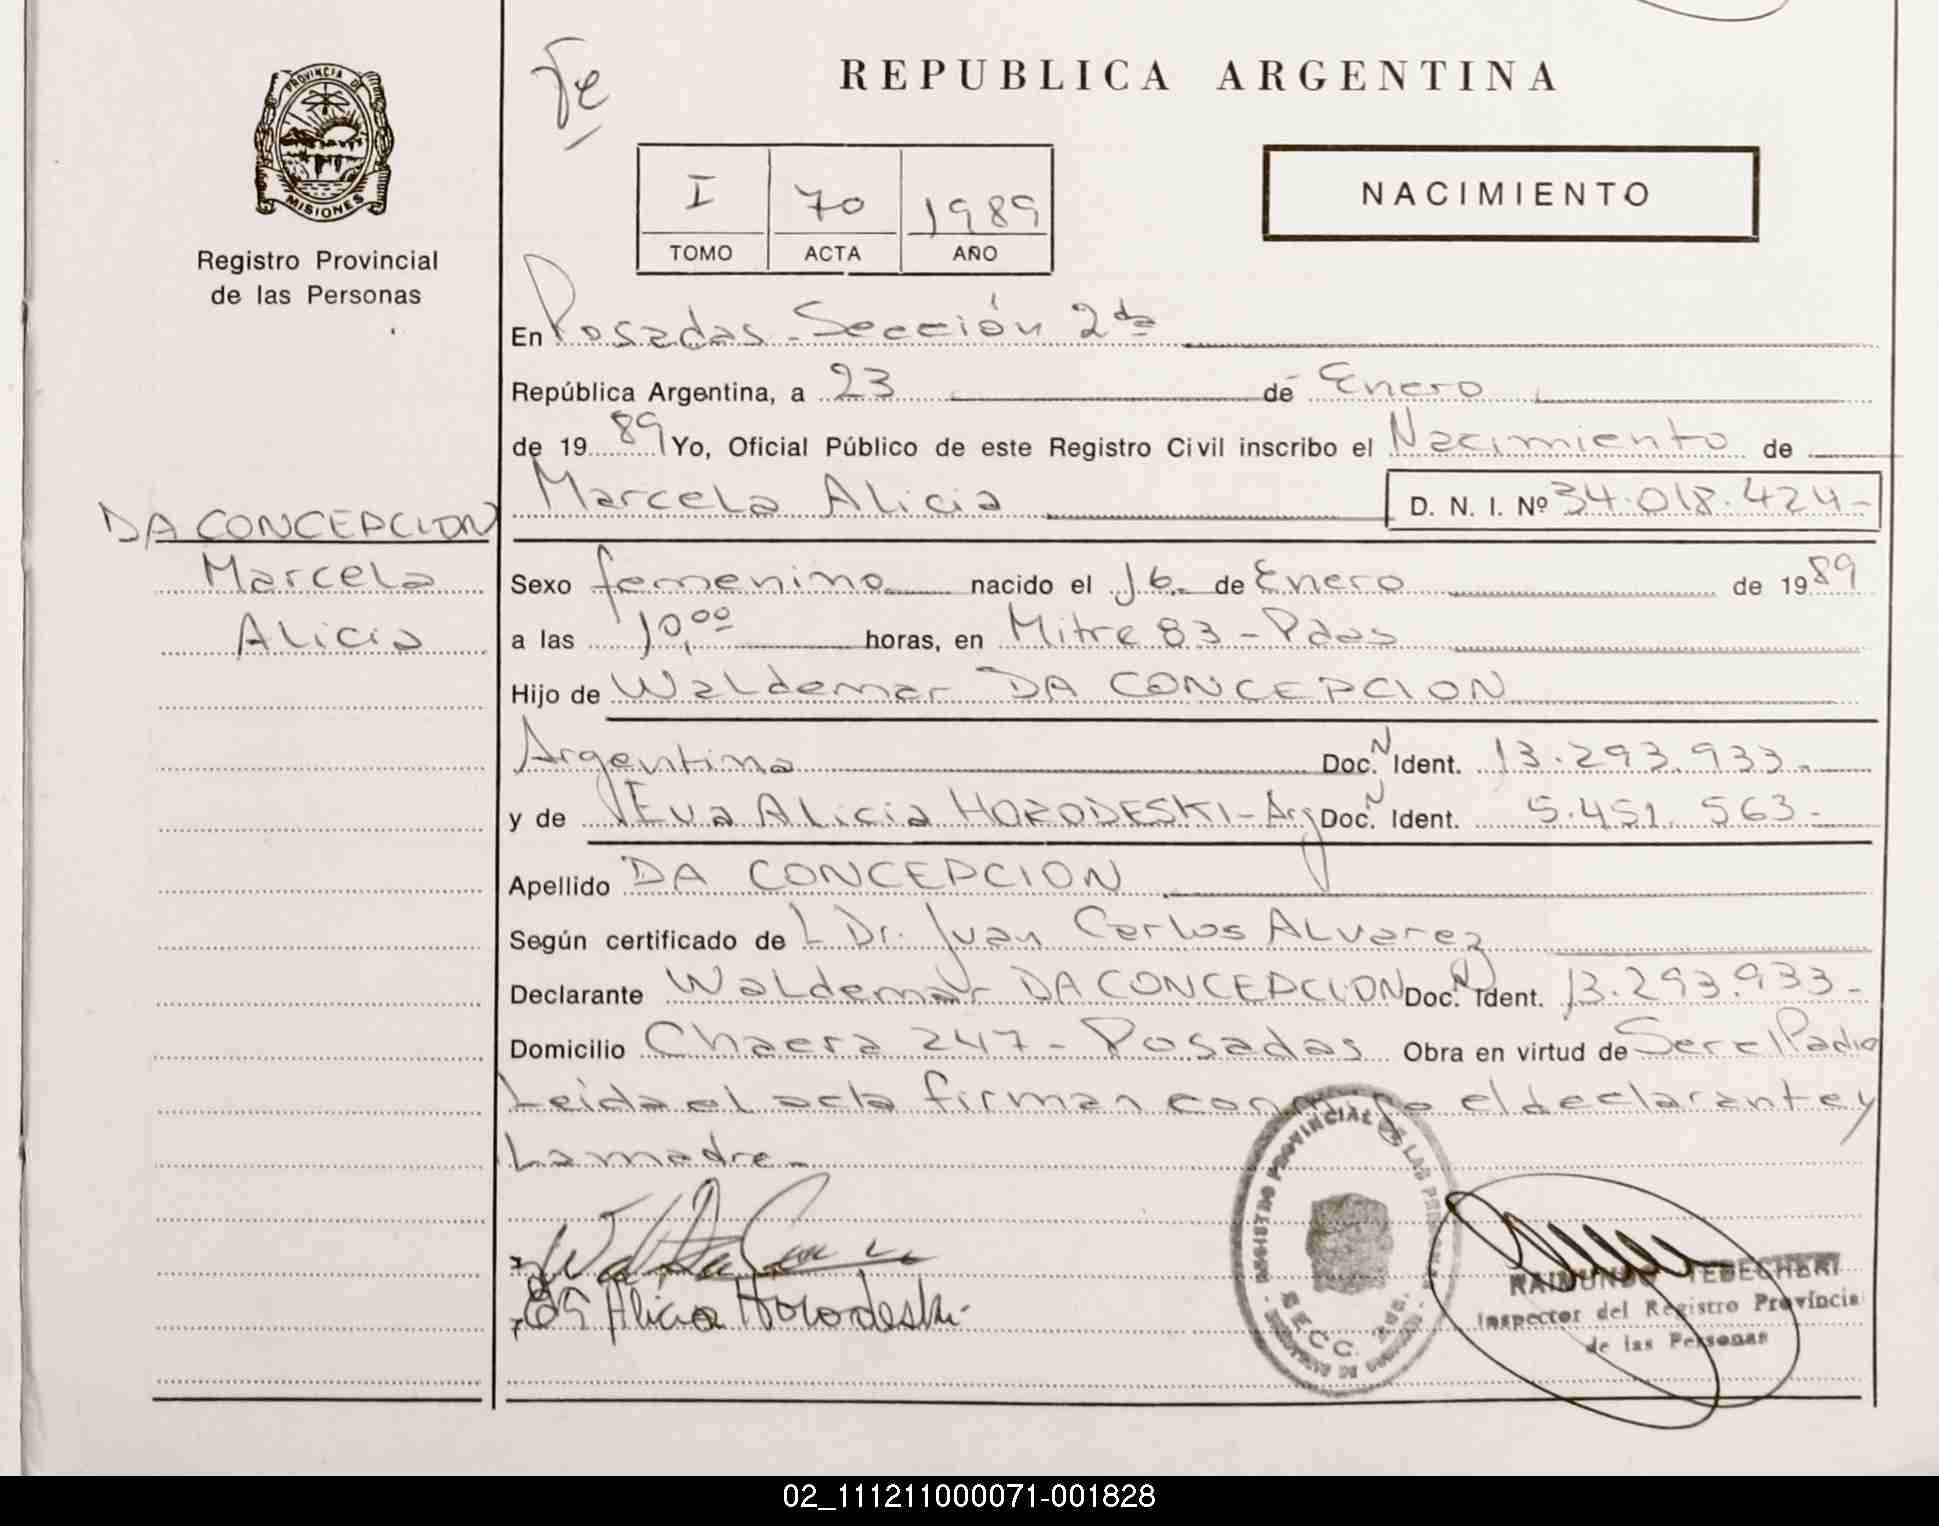 PROVINCIA DE
MISIONES
Registro Provincial
de las Personas
DA CONCEPCION
Marcela
Alicia
REPUBLICA ARGENTINA
I 70 1989
TOMO ACTA AÑO
NACIMIENTO
En Posadas - Sección 2da
República Argentina, a 23 de Enero
de 1989 Yo, Oficial Público de este Registro Civil inscribo el Nacimiento de
Marcela Alicia D. N. I. Nº 34.018.424-
Sexo femenino nacido el 16 de Enero de 1989
a las 10,00 horas, en Mitre 83 - Pdas
Hijo de Waldemar DA CONCEPCION
Argentino Doc. N Ident. 13.293.933-
y de Eva Alicia HORODESKI - Arg Doc. N Ident. 5.451.563-
Apellido DA CONCEPCION
Según certificado de L Dr. Juan Carlos ALvarez
Declarante Waldemar DA CONCEPCION Doc. N Ident. 13.293.933-
Domicilio Chacra 247 - Posadas Obra en virtud de Ser el Padre
Leida el acta firman conmigo el declarante y
La madre -
Alicia Horodeski
REGISTRO PROVINCIAL DE LAS PERSONAS
SECC. 2da.
RAIMUNDO TEDECHERI
Inspector del Registro Provincial
de las Personas
02_111211000071-001828